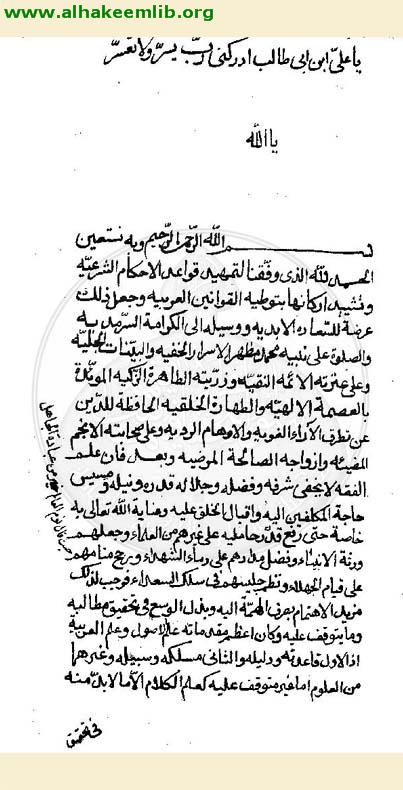 www.alhakeemlib.org
يا علىّ ابن ابى طالب ادركنى ربّ يسّر ولا تعسّر
يا اللّه
بسم اللّه الرّحمن الرّحيم وبه نستعين
الحمد للّه الذى وفّقنا لتمهيد قواعد الاحكام الشرعيّه
وتشييد اركانها بتوطيه القوانين العربيه وجعل ذلك
عرضة للسعاده الابديه ووسيله الى الكرامة السّرمديه
والصلوة على نبيه محمد مظهر الاسرار الخفيه والبيّنات الجليّه
وعلى عترته الائمه النقيّه وذرّيته الطاهرة الزكيه المويّدة
بالعصمة الالهيّه والطهارة الخلقيه الحافظة للدّين
عن تطرق الآراء الغويه والاوهام الرديه وعلى صحابته الانجم
المضيئه وازواجه الصالحة المرضيه وبعد فان علم
الفقه لا يخفى شرفه وفضله وجلاله قدره ونبله ومسيس
حاجة المكلفين اليه واقبال الخلق عليه وعناية اللّه تعالى به
خاصة حتى رفع قدر حامليه على غيرهم من العلماء وجعلهم
ورثة الانبياء وفضل مدادهم على دماء الشهداء ورجح منامهم
على قيام الجهلاء ونظم جليسهم فى سلك السعداء فوجب لذلك
مزيد الاهتمام بصرف الهمّة اليه وبذل الوسع فى تحقيق مطالبه
وما يتوقف عليه وكان اعظم مقدماته علم الاصول وعلم العربية
اذ الاول قاعدته ودليله والثانى مسلكه وسبيله وغيرهما
من العلوم اما غير متوقف عليه كعلم الكلام الا ما لا بدّ منه
فى تحقق